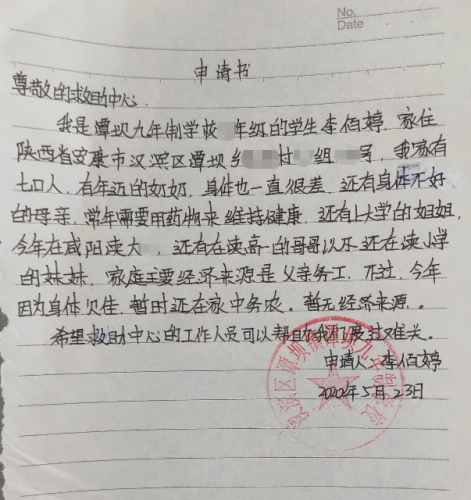 No.
Date
申请书
尊敬的救助中心.
我是潭坝九年制学校 年级的学生李佰婷.家住
陕西省安康市汉滨区潭坝乡 村 组 号,我家有
七口人,有年迈的奶奶,身体也一直很差,还有身体不好
的母亲,常年需要用药物来维持健康,还有上大学的姐姐,
今年在咸阳读大 ,还有在读高一的哥哥以及还在读小学
的妹妹,家庭主要经济来源是父亲务工,不过,今年
因为身体欠佳,暂时还在家中务农。暂无经济来源。
希望救助中心的工作人员可以帮助我们度过难关。
申请人:李佰婷
2020年5月23日
汉滨区潭坝镇潭坝九年制学校